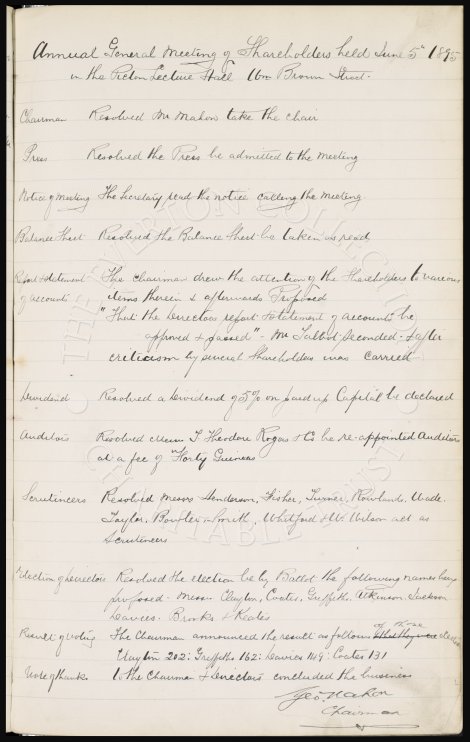 Annual General Meeting of Shareholders held June 5th 1895
in the Picton Lecture Hall Wm Brown Street.
Chairman Resolved Mr Mahon take the chair
Press Resolved the Press be admitted to the meeting
Notice of Meeting The Secretary read the notice calling the meeting
Balance Sheet Resolved the Balance Sheet be taken as read
Report & statement The Chairman drew the attention of the Shareholders to various
of accounts items therein & afterwards Proposed
"That the Directors report & statement of accounts be
approved & passed" - Mr Talbot Seconded - & after
criticism by several Shareholders was carried
Dividend Resolved a Dividend of 5% on paid up Capital be declared
Auditors Resolved Messrs Theodore Rogers & Co be re-appointed Auditors
at a fee of Forty Guineas
Scrutineers Resolved Messrs Henderson, Fisher, Turner, Rowlands, Wade,
Taylor, Bowler, Smith, Whitford & W. Wilson act as
Scrutineers
Election of Directors Resolved the election be by Ballot the following names being
proposed. Messrs Clayton, Coates, Griffiths, Atkinson Jackson
Davies. Brooks & Keates
Result of voting The Chairman announced the result as follows of those elected
Clayton 202: Griffiths 162: Davies 149: Coates 131
Vote of thanks to the Chairman & Directors concluded the business
Geo. Mahon
Chairman
THE EVERTON COLLECTION
CHARITABLE TRUST